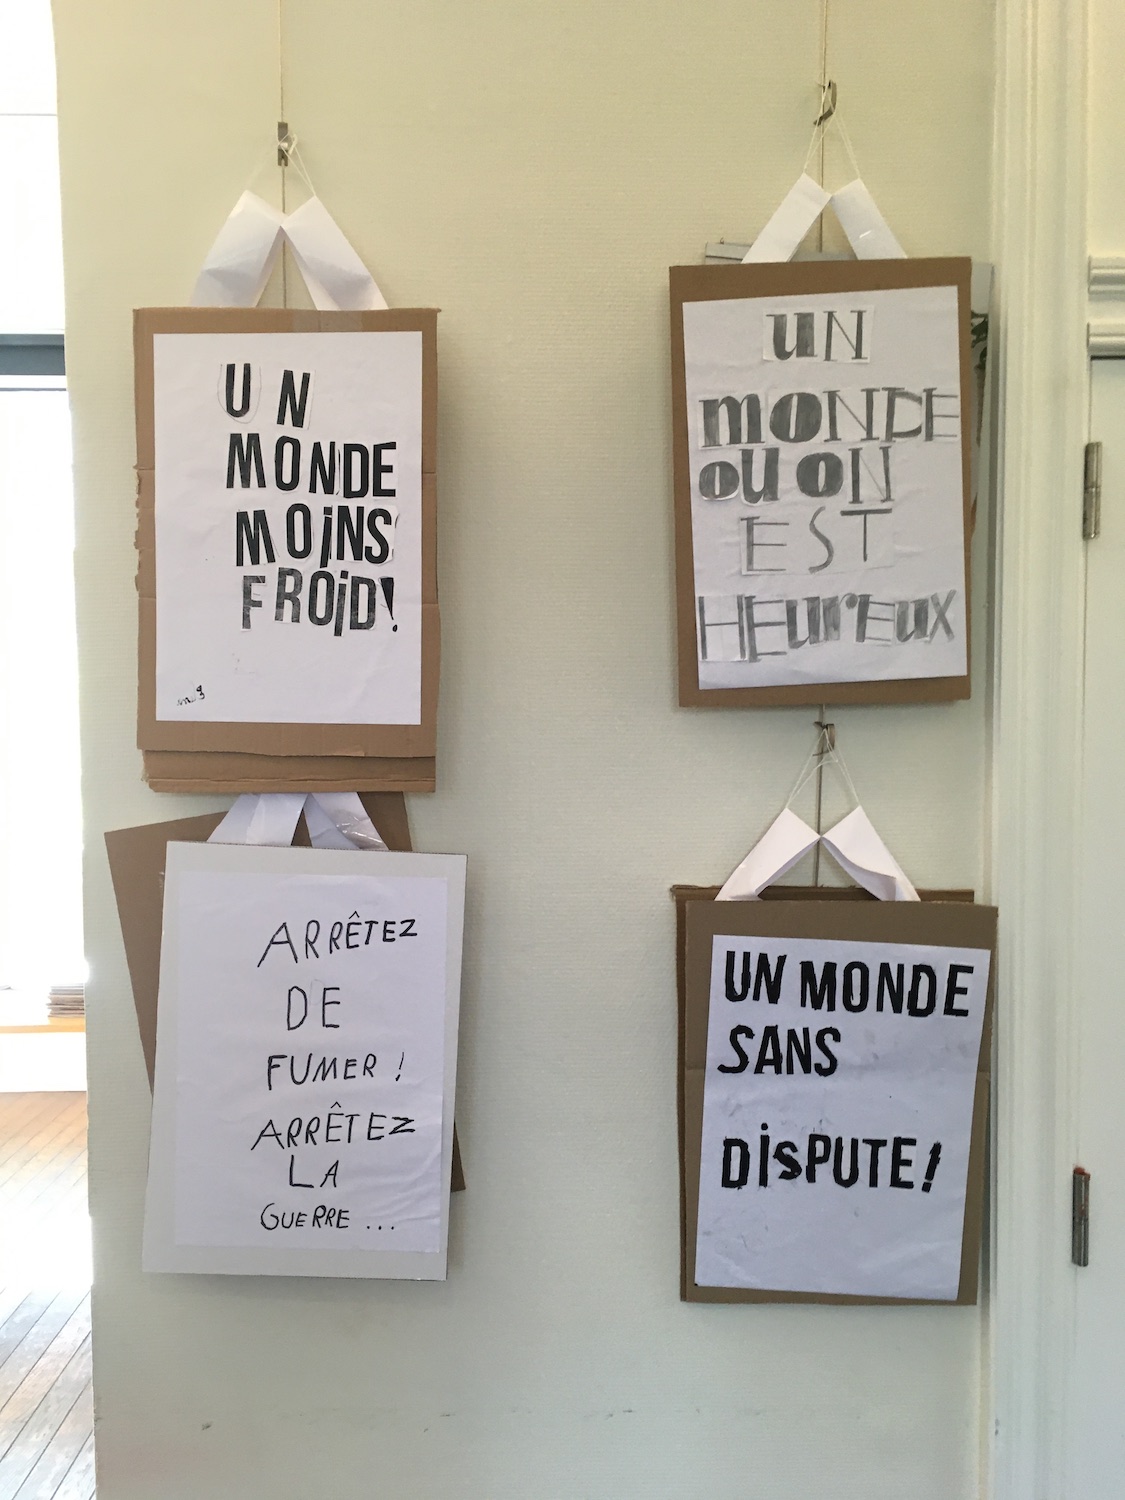 UN
MONDE
MOiNS
FROiD!
UN
MONDE
OU ON
EST
HEUrEUX
ARRÊTEZ
DE
FUMER !
ARRÊTEZ
LA
GUERRE ...
UN MONDE
SANS
DiSPUTE!